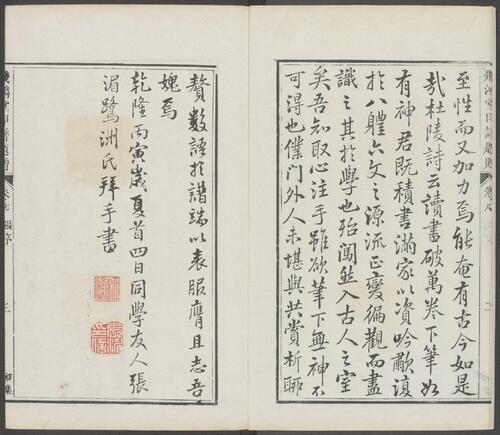 至性而又加力焉能奄有古今如是
哉杜陵詩云讀書破萬卷下筆如
有神君既積書滿家以資吟歗復
於八體六文之源流正變徧觀而盡
識之其於學也殆闖然入古人之室
矣吾知取心注手雖欲筆下無神不
可得也僕門外人未堪與共賞析聊
贅數語於譜端以表服膺且志吾
媿焉
乾隆丙寅歲夏首四日同學友人張
湄鷺洲氏拜手書